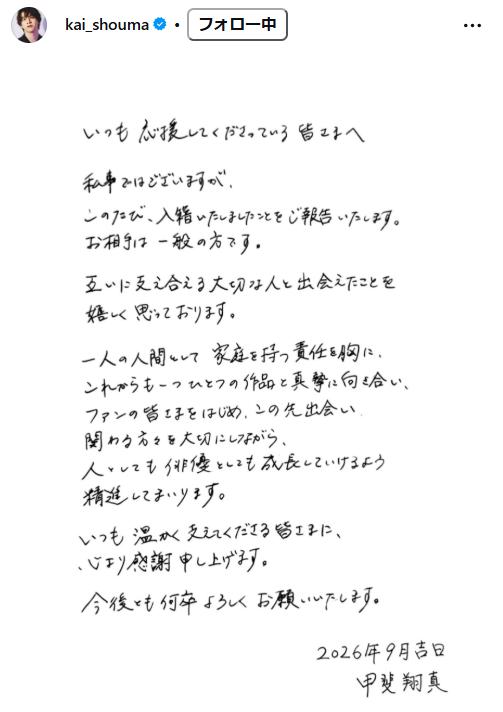 kai_shouma • フォロー中
いつも 応援してくださっている 皆さまへ
私事ではございますが、
このたび、入籍いたしましたことをご報告いたします。
お相手は 一般の方です。
互いに支え合える大切な人と出会えたことを
嬉しく思っております。
一人の人間として 家庭を持つ責任を胸に、
これからも一つひとつの作品と真摯に向き合い、
ファンの皆さまをはじめ、この先出会い
関わる方々を大切にしながら、
人としても俳優としても成長していけるよう
精進してまいります。
いつも温かく支えてくださる皆さまに、
心より感謝申し上げます。
今後とも何卒よろしくお願いいたします。
2026年9月吉日
甲斐翔真